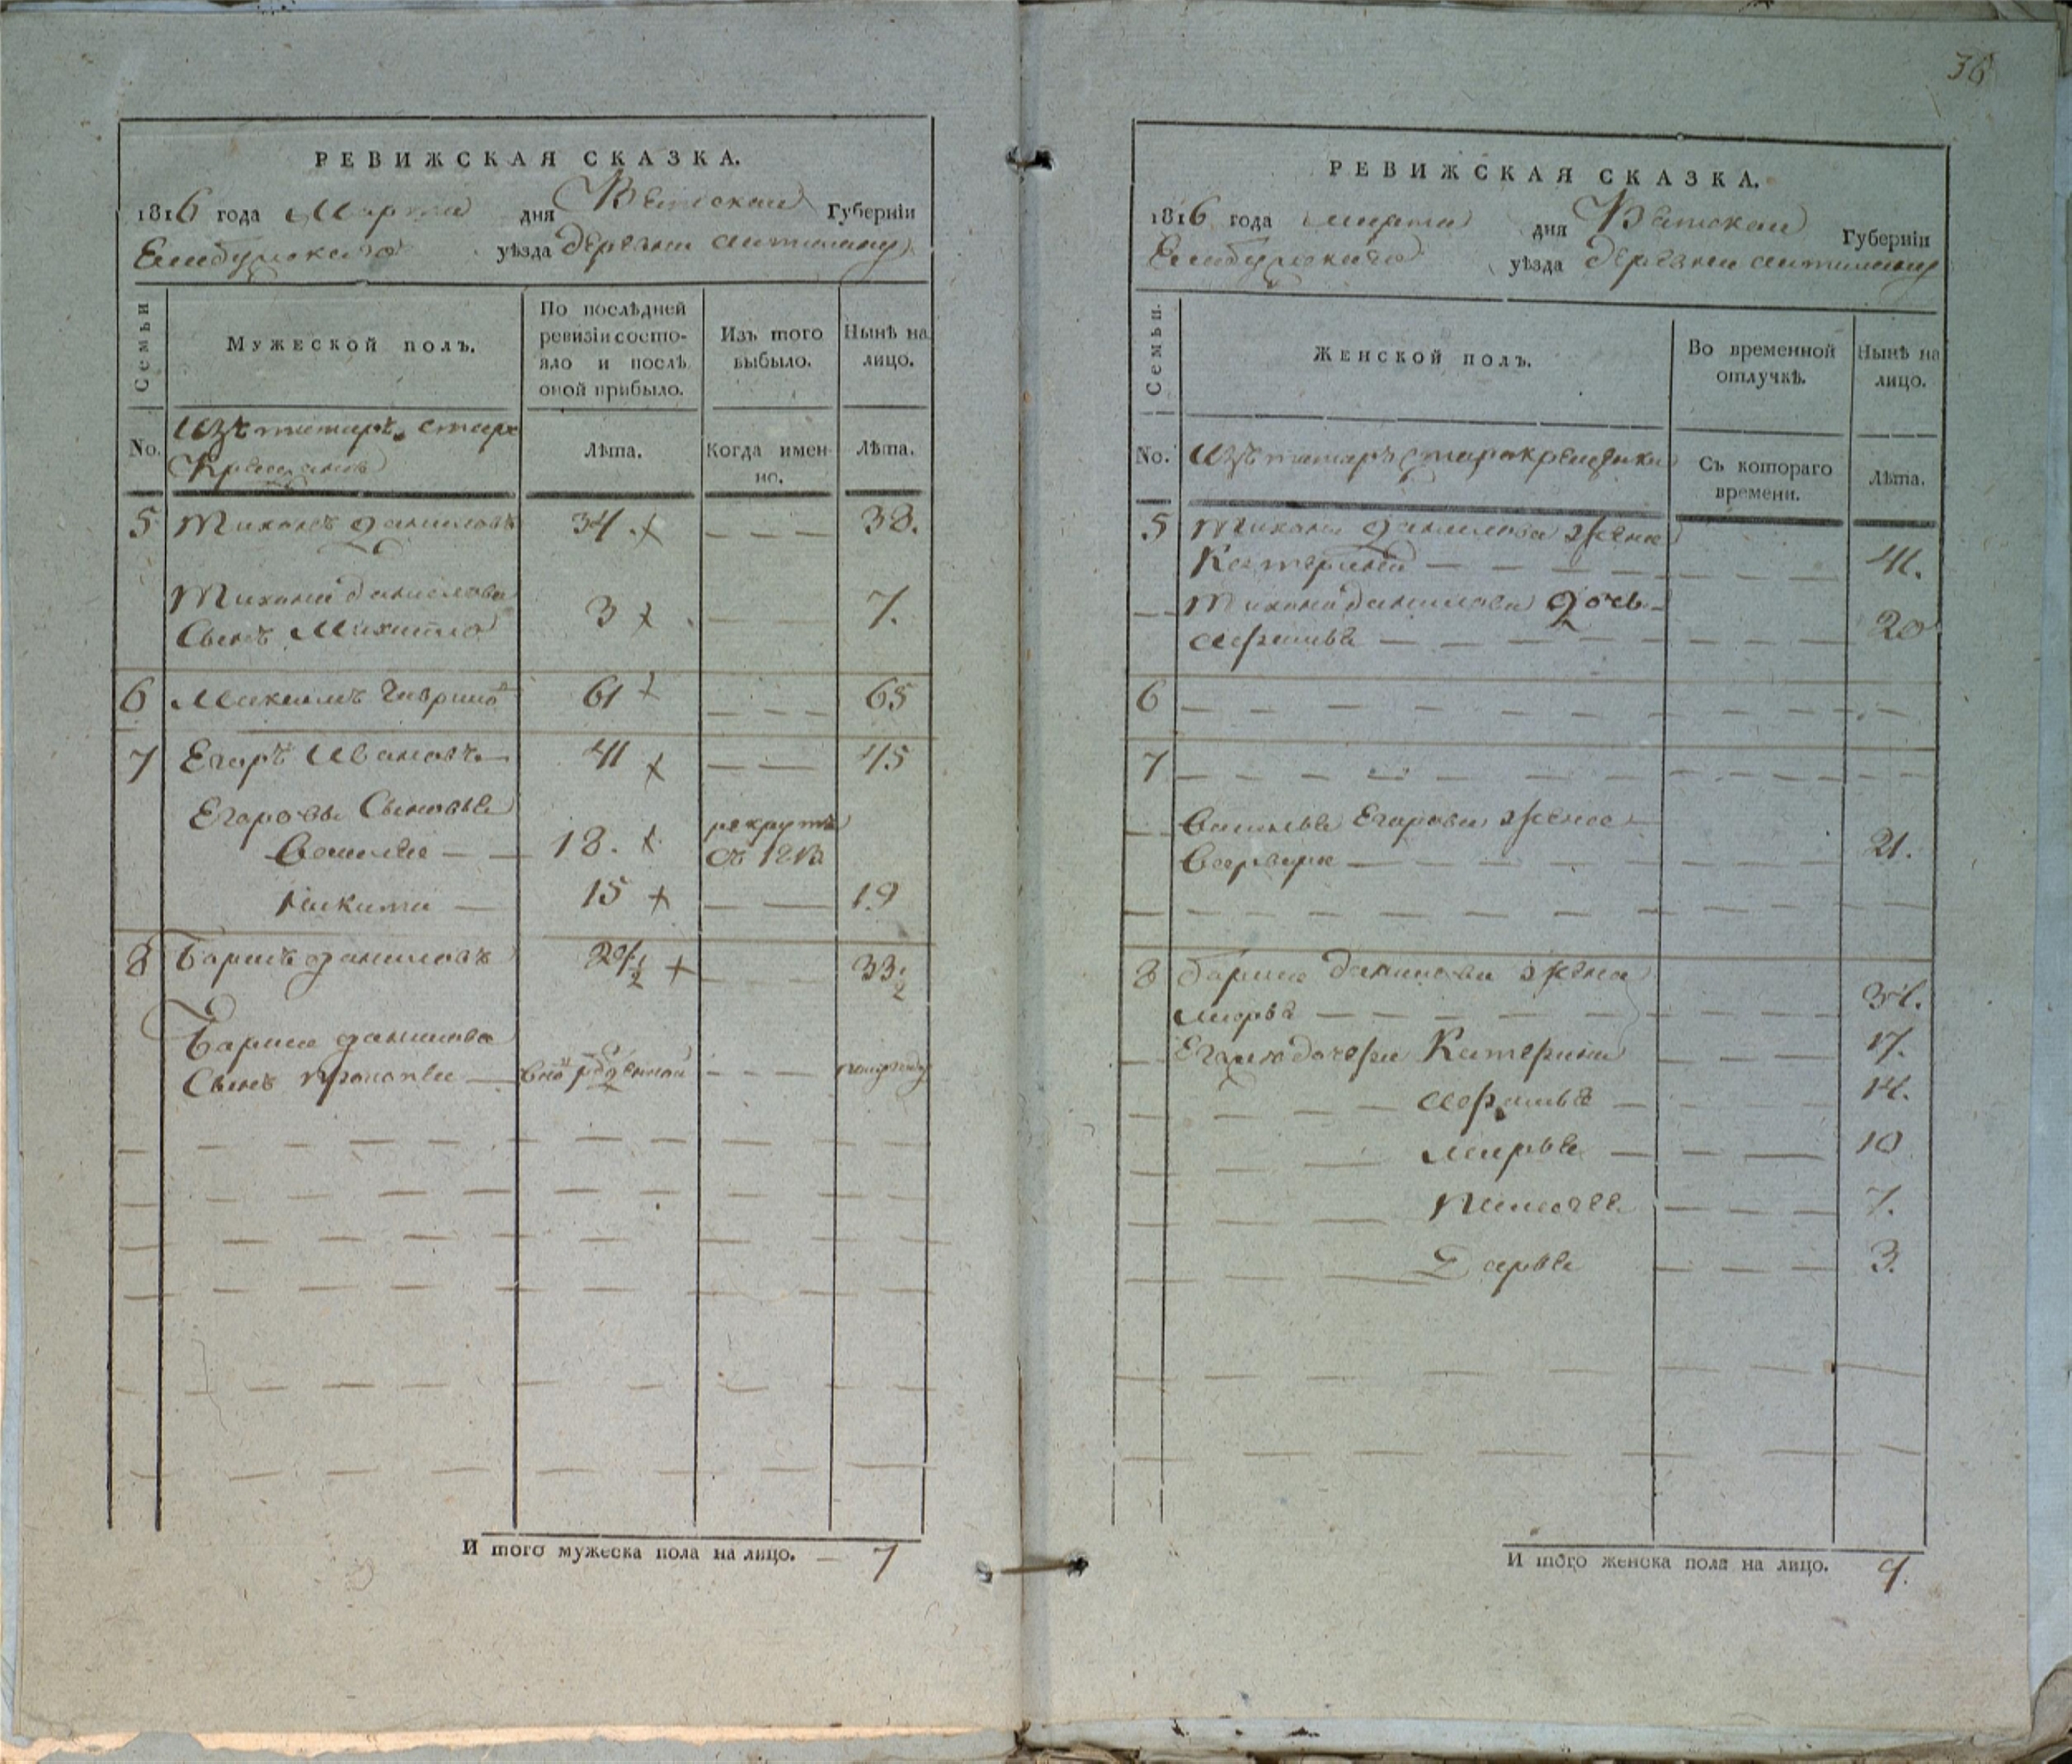 36
РЕВИЖСКАЯ СКАЗКА.
1816 года Марта дня Вятской Губерніи
Елабужскаго уѣзда деревни
Семьи
Мужеской полъ.
По послѣдней
ревизіи состо-
яло и послѣ
оной прибыло.
Изъ того
выбыло.
Нынѣ на
лицо.
No.
Изъ татаръ старо
Крещеновъ
Лѣта.
Когда имен-
но.
Лѣта.
5 Тихонъ Даниловъ 34. 38.
Тихона Данилова
Сынъ Михайло 3 7.
6 Максимъ Гаврило 61 65
7 Егоръ Ивановъ 41 45
Егоровы Сыновья
Василей 18. рекрутъ
съ 1813
Никита 15 19
8 Борисъ Даниловъ 29 1/2 33 1/2
Бориса Данилова
Сынъ Прокопей внов рожденной полугоду
И того мужеска пола на лицо. 7
РЕВИЖСКАЯ СКАЗКА.
1816 года марта дня Вятской Губерніи
Елабужскаго уѣзда деревни
Семьи.
Женской полъ.
Во временной
отлучкѣ.
Нынѣ на
лицо.
No.
Изъ татаръ старокрещеныхъ
Съ котораго
времени.
Лѣта.
5 Тихона Данилова жена
Катерина 41.
Тихона Данилова дочь
20
6
7
Василья Егорова жена
Варвара 21.
8 Бориса Данилова жена
Марья 34.
Егоже дочери Катерина 17.
14.
Марья 10
Пелагея 7.
Дарья 3.
И того женска пола на лицо. 9.